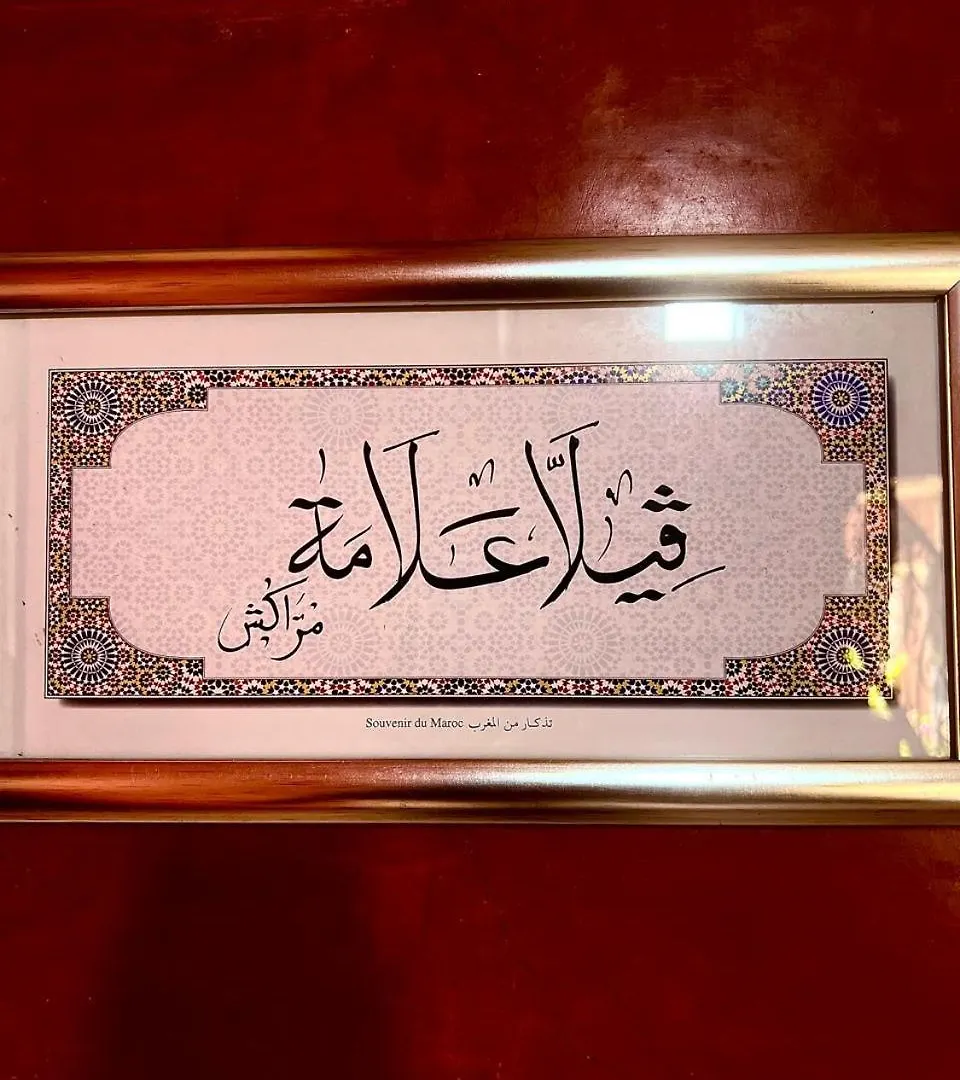 ڤيلاّ علامة
مرّاكش
Souvenir du Maroc تذكار من المغرب